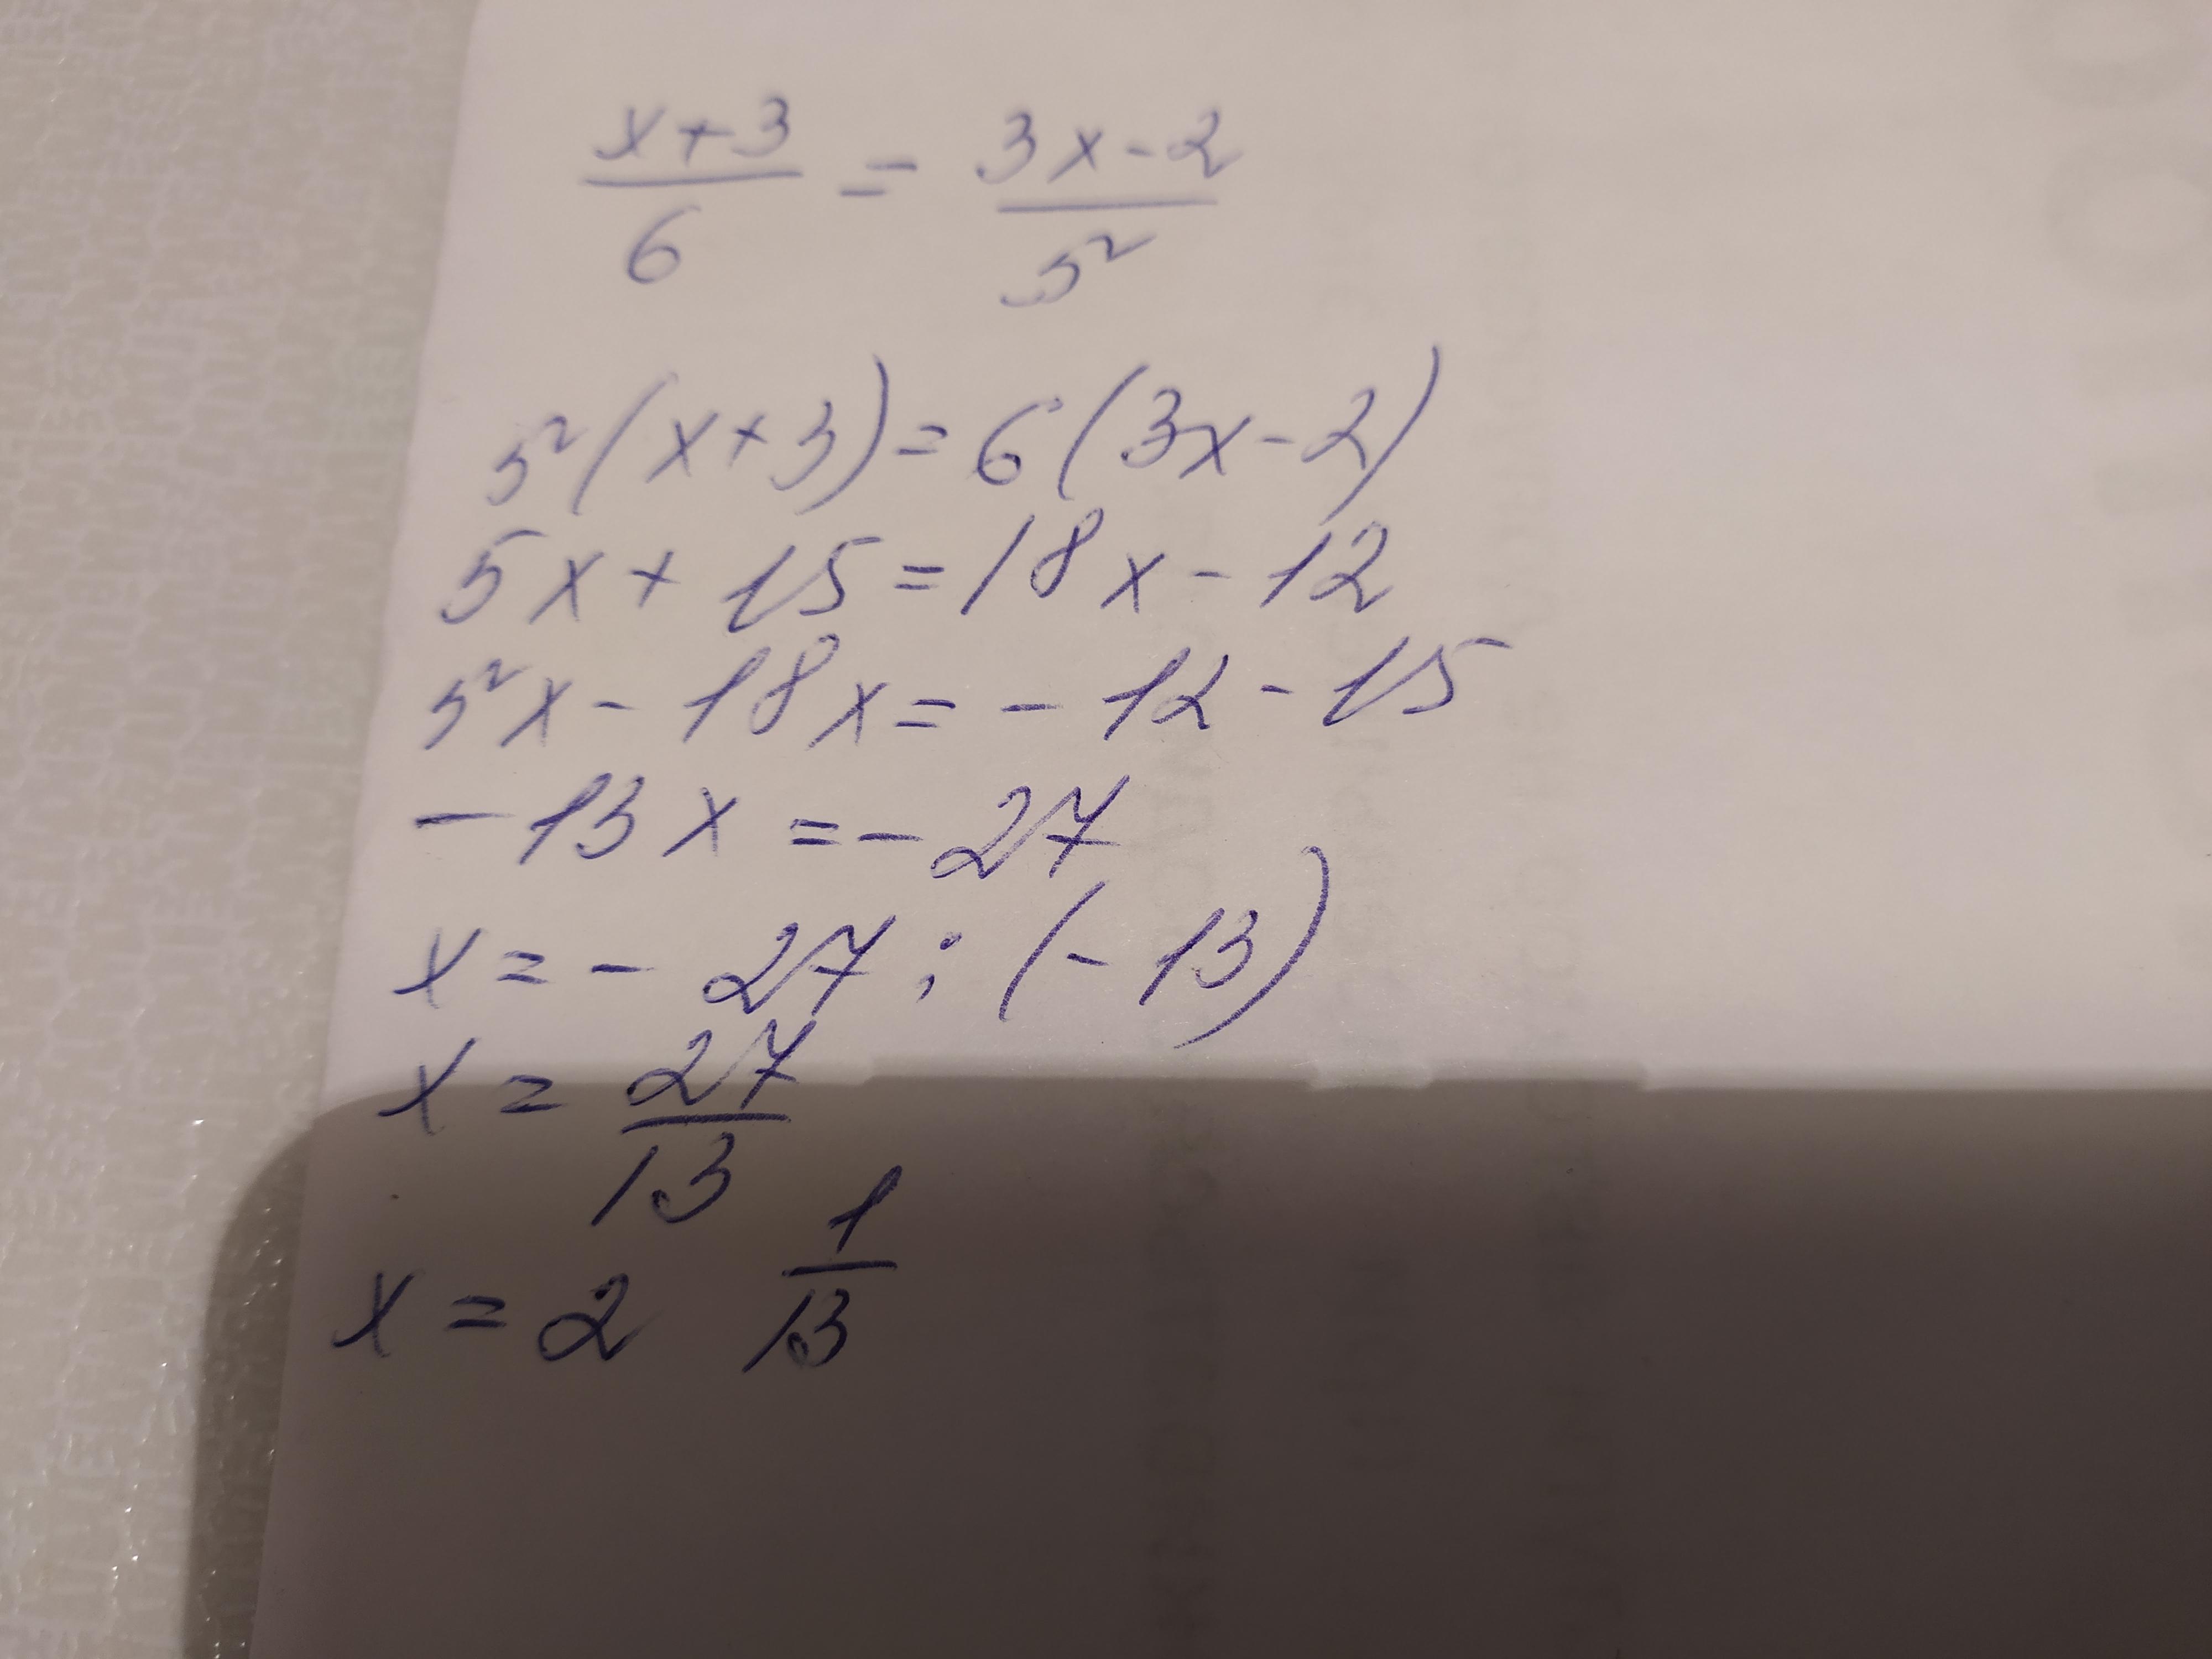 x+3/6 = 3x-2/5
5(x+3)=6(3x-2)
5x+15=18x-12
5x-18x=-12-15
-13x=-27
x=-27:(-13)
x=27/13
x=2 1/13